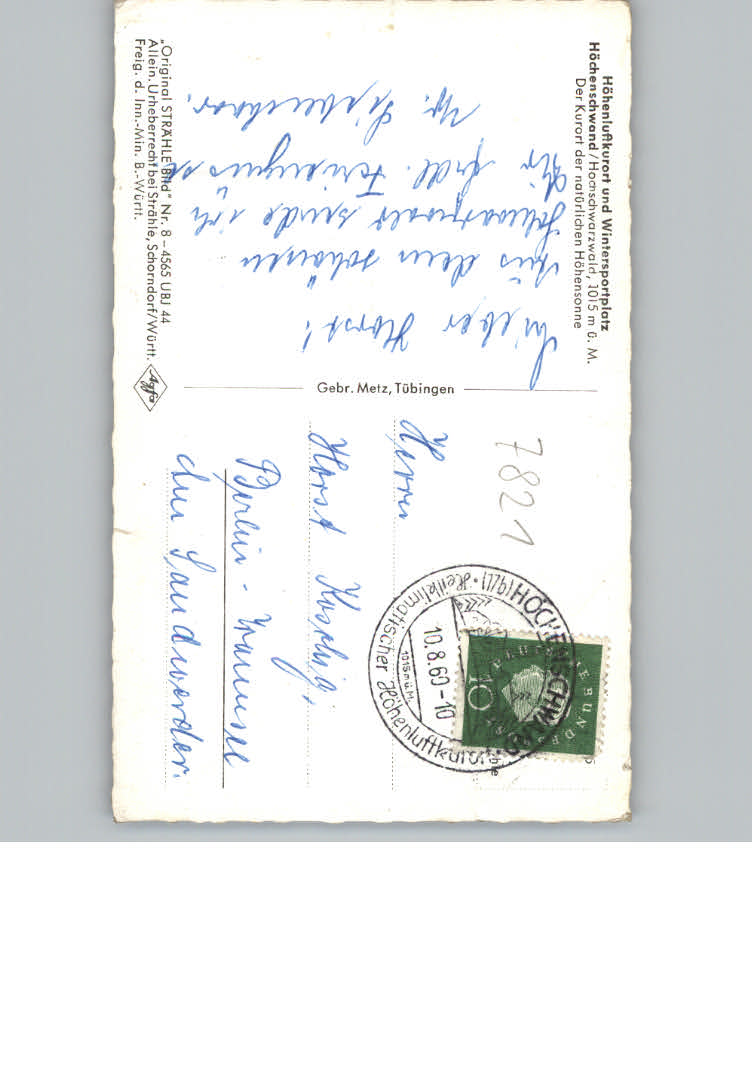 Höhenluftkurort und Wintersportplatz
Höchenschwand / Hochschwarzwald, 1015 m ü. M.
Der Kurort der natürlichen Höhensonne
Lieber Horst!
Aus dem schönen
Schwarzwald sende ich
Dir
„Original STRÄHLE Bild" Nr. 8 – 4565 UBJ 44
Allein. Urheberrecht bei Strähle, Schorndorf/Württ.
Freig. d. Inn.-Min. B.-Württ.
Agfa
Gebr. Metz, Tübingen
7821
(17b) HÖCHENSCHWAND
Heilklimatischer Höhenluftkurort
1015 m ü. M.
10.8.60-10
10
Herrn
Horst
Berlin - Wannsee